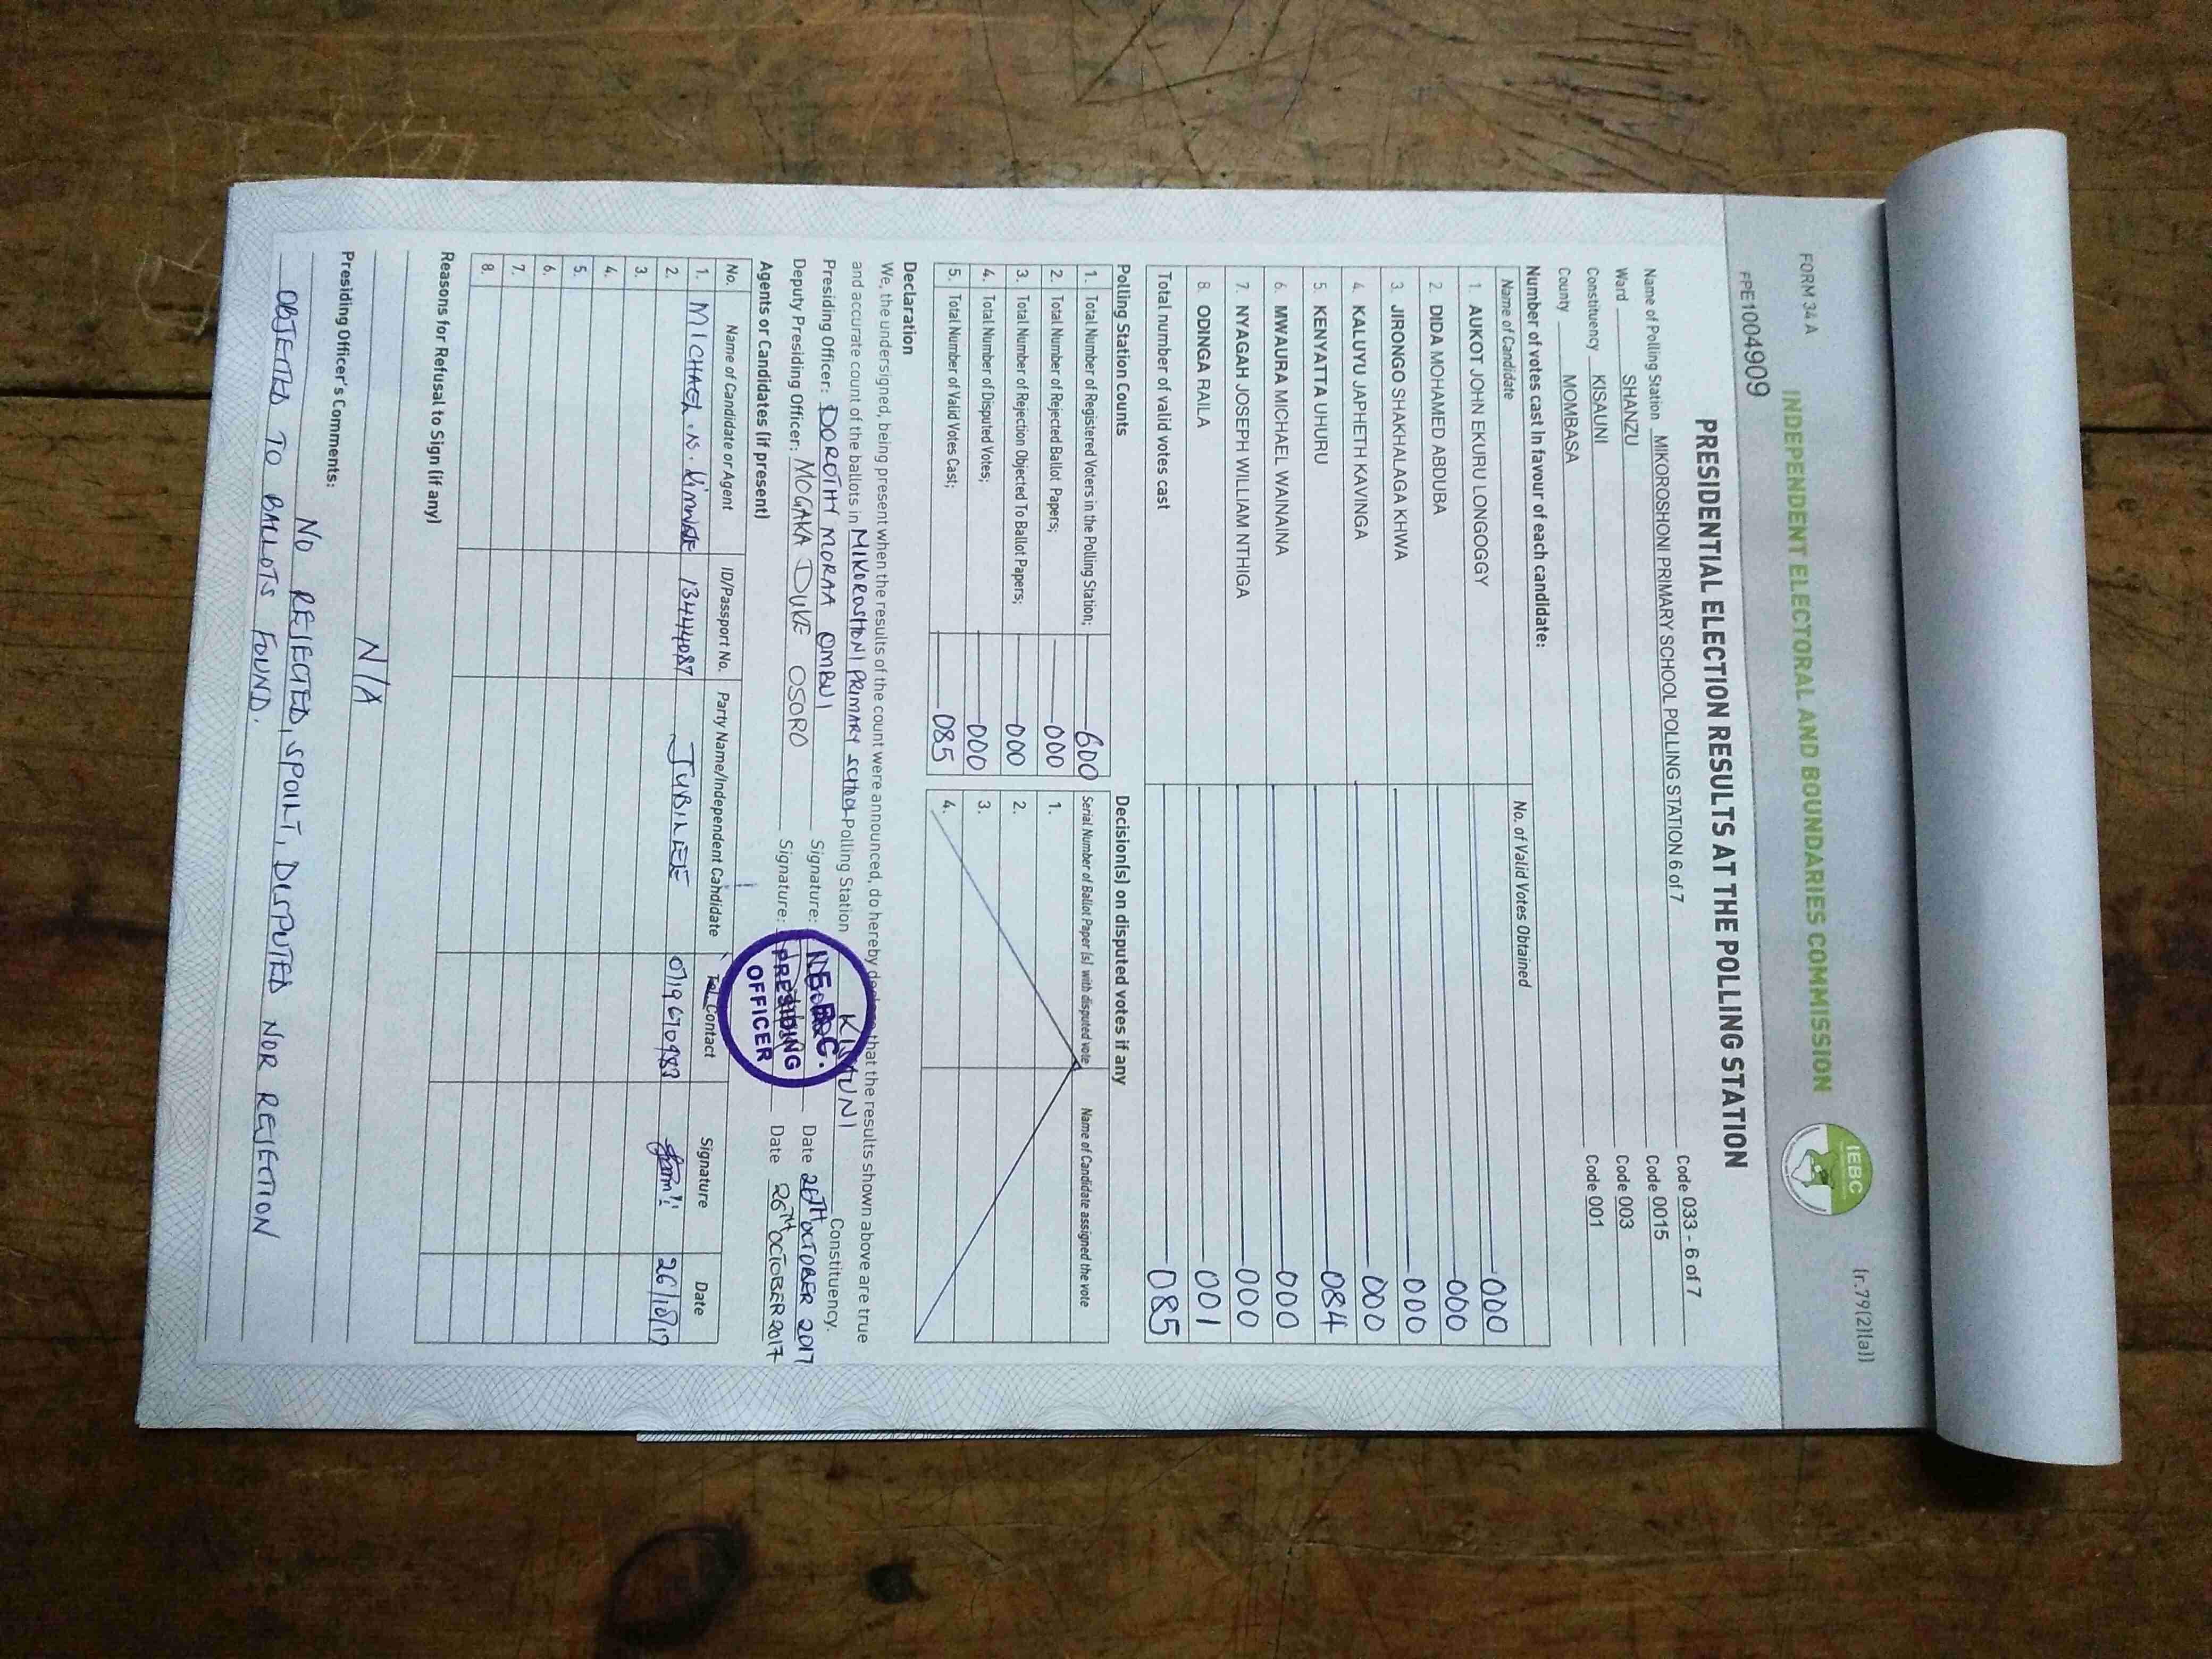 FORM 34 A
(r.79(2)(a))
INDEPENDENT ELECTORAL AND BOUNDARIES COMMISSION
IEBC
PPE1004909
PRESIDENTIAL ELECTION RESULTS AT THE POLLING STATION
Name of Polling Station MIKOROSHONI PRIMARY SCHOOL POLLING STATION 6 of 7 Code 033 - 6 of 7
Ward SHANZU Code 0015
Constituency KISAUNI Code 003
County MOMBASA Code 001
Number of votes cast in favour of each candidate:
Name of Candidate No. of Valid Votes Obtained
1. AUKOT JOHN EKURU LONGOGGY 000
2. DIDA MOHAMED ABDUBA 000
3. JIRONGO SHAKHALAGA KHWA 000
4. KALUYU JAPHETH KAVINGA 000
5. KENYATTA UHURU 084
6. MWAURA MICHAEL WAINAINA 000
7. NYAGAH JOSEPH WILLIAM NTHIGA 000
8. ODINGA RAILA 001
Total number of valid votes cast 085
Polling Station Counts Decision(s) on disputed votes if any
1. Total Number of Registered Voters in the Polling Station; 600 Serial Number of Ballot Paper (s) with disputed vote Name of Candidate assigned the vote
2. Total Number of Rejected Ballot Papers; 000 1.
3. Total Number of Rejection Objected To Ballot Papers; 000 2.
4. Total Number of Disputed Votes; 000 3.
5. Total Number of Valid Votes Cast; 085 4.
Declaration
We, the undersigned, being present when the results of the count were announced, do hereby declare that the results shown above are true
and accurate count of the ballots in MIKOROSHONI PRIMARY SCHOOL Polling Station KISAUNI Constituency.
Presiding Officer: DOROTHY MORAA OMBUI Signature: Date 26TH OCTOBER 2017
Deputy Presiding Officer: MOGAKA DUKE OSORO Signature: Date 26TH OCTOBER 2017
I.E.B.C.
PRESIDING
OFFICER
Agents or Candidates (if present)
No. Name of Candidate or Agent ID/Passport No. Party Name/Independent Candidate Tel. Contact Signature Date
1. MICHAEL .N. 13444087 JUBILEE 0719670983 26/10/17
2.
3.
4.
5.
6.
7.
8.
Reasons for Refusal to Sign (if any)
N/A
Presiding Officer's Comments:
NO REJECTED, SPOILT, DISPUTED NOR REJECTION
OBJECTED TO BALLOTS FOUND.